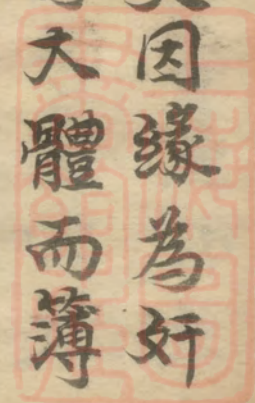 因緣為奸
大體而簿